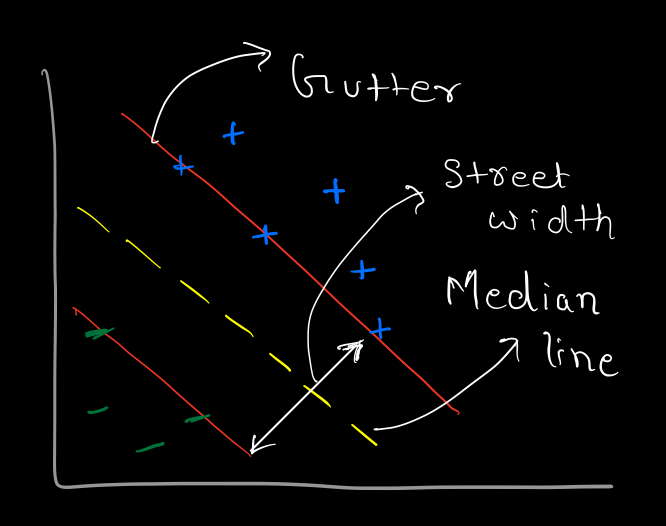 Gutter
Street
width
Median
line